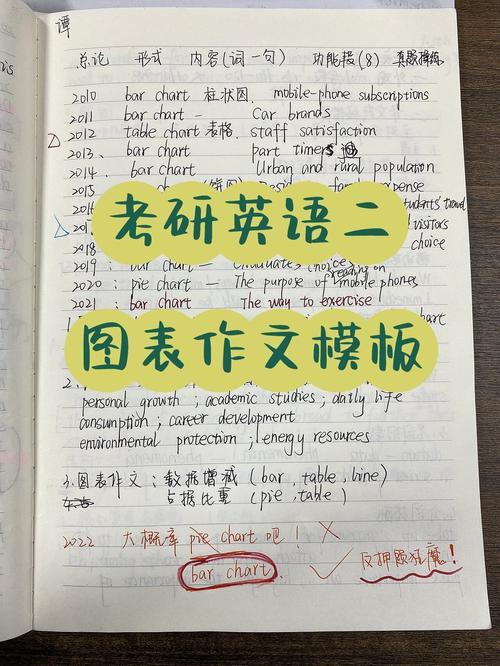 谭
总论 形式 内容(词一句) 功能段(8) 真题操练
2010 bar chart 柱状图, mobile-phone subscriptions
2011 bar chart — Car brands
2012 table chart 表格, staff satisfaction
2013. bar chart part timers
2014. bar chart Urban and rural population
2015 expense
2016 students' travel
考研英语二
visitors
2018 choice
2019 : bar chart — Graduates choice
2020 : pie chart — The purpose of reading on mobile phones
2021 : bar chart The way to exercise
图表作文模板
personal growth ; academic studies ; daily life
consumption ; career development
environmental protection ; energy resources
3. 图表作文 : 数据增减 (bar, table, line)
占据比重 (pie, table)
2022 大概率 pie chart 吧! ×
bar chart. ✓ 反押题狂魔!